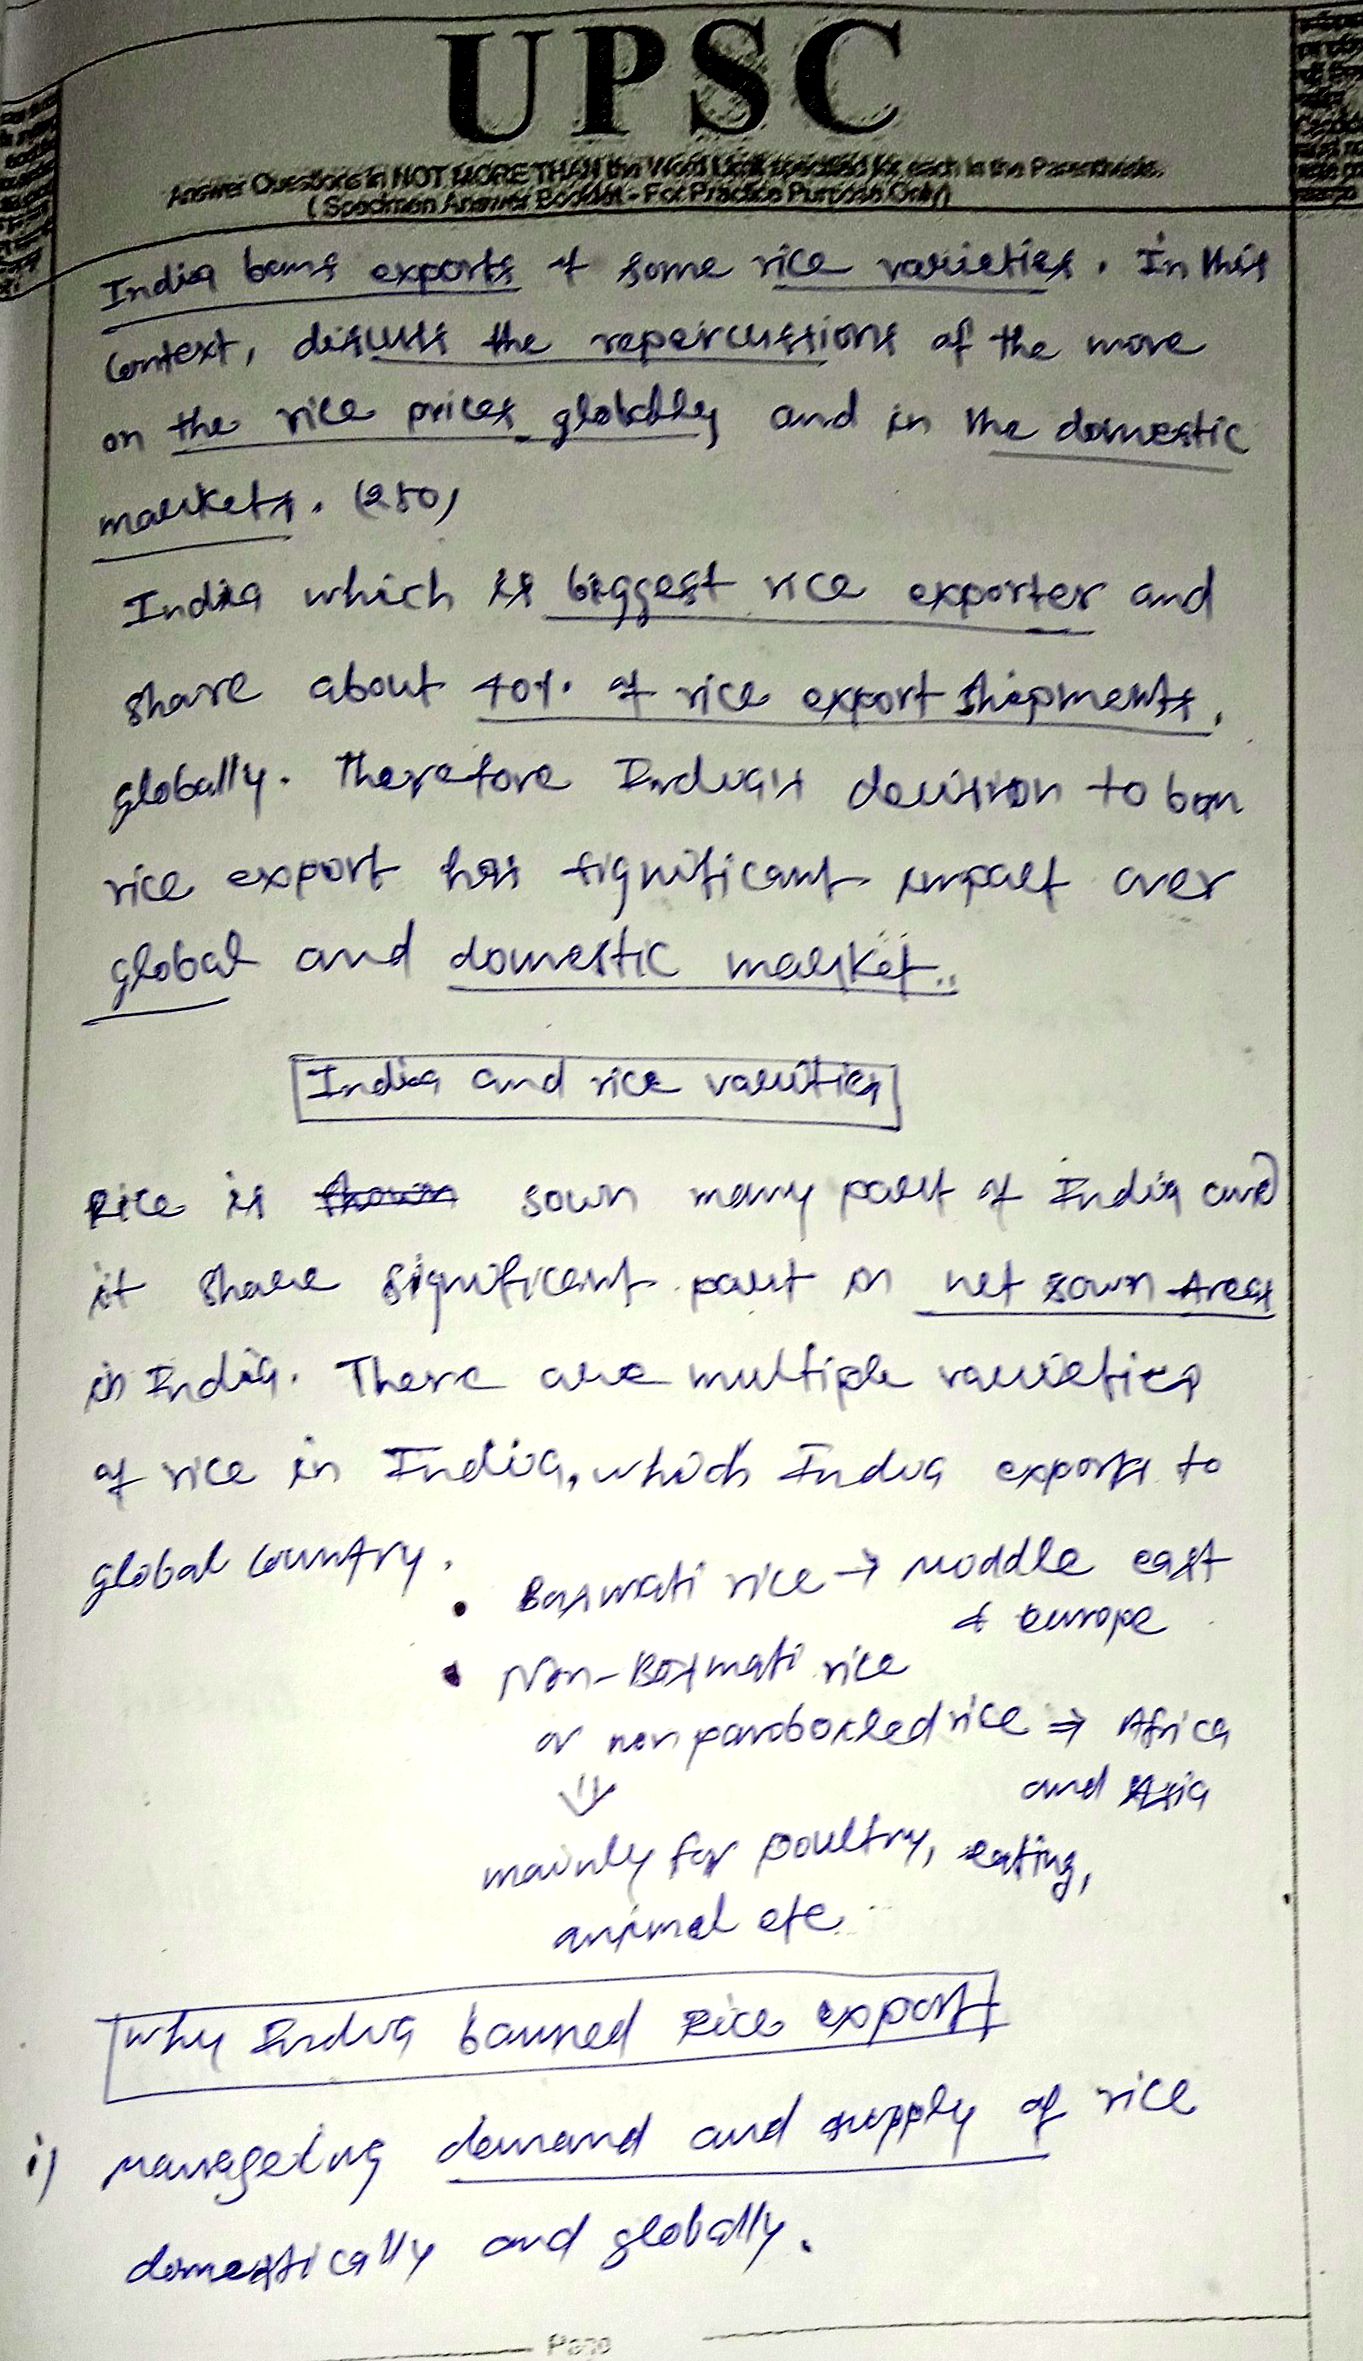 UPSC
Answer Questions in NOT MORE THAN the Word Limit specified for each in the Parenthesis.
(Specimen Answer Booklet - For Practice Purpose Only)
India bans exports of some rice varieties. In this
context, discuss the repercussions of the move
on the rice prices globally and in the domestic
markets. (250)
India which is biggest rice exporter and
share about 40% of rice export shipments,
globally. Therefore India's decision to ban
rice export has significant impact over
global and domestic market..
India and rice varities
Rice is sown many part of India and
it share significant part in net sown Areas
in India. There are multiple varieties
of rice in India, which India exports to
global country.
• Basmati rice → middle east
& europe
• Non-Basmati rice
or non paraboiled rice ⇒ Africa
and Asia
⇓
mainly for poultry, eating,
animal etc.
Why India banned Rice export
i) manageing demand and supply of rice
domestically and globally.
Page